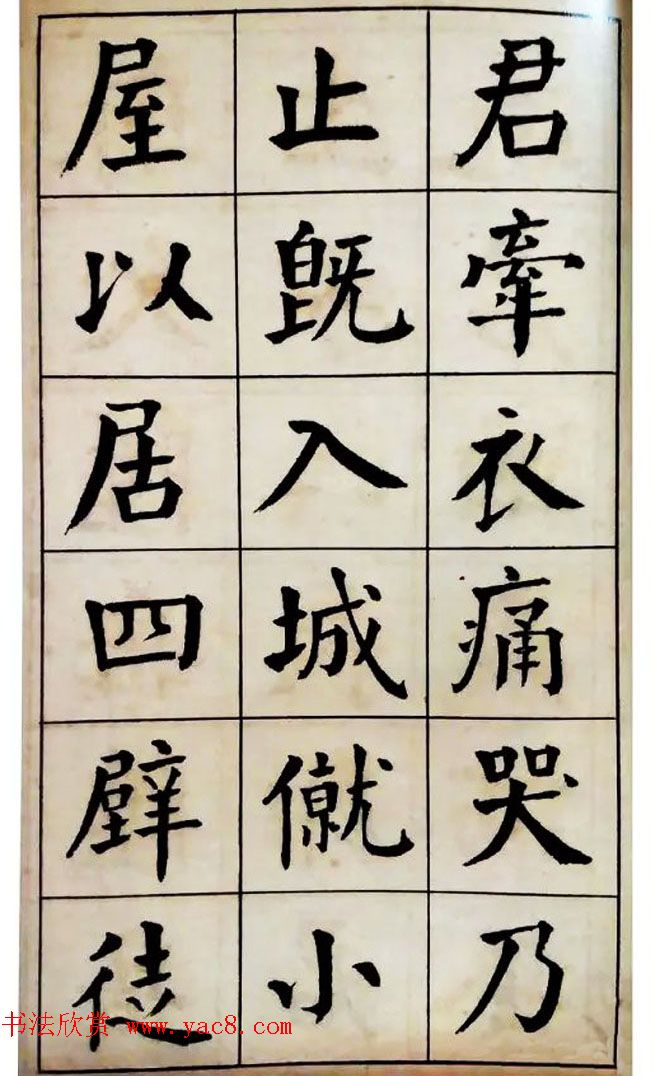 君牽衣痛哭乃
止既入城僦小
屋以居四壁徒
书法欣赏 www.yac8.com